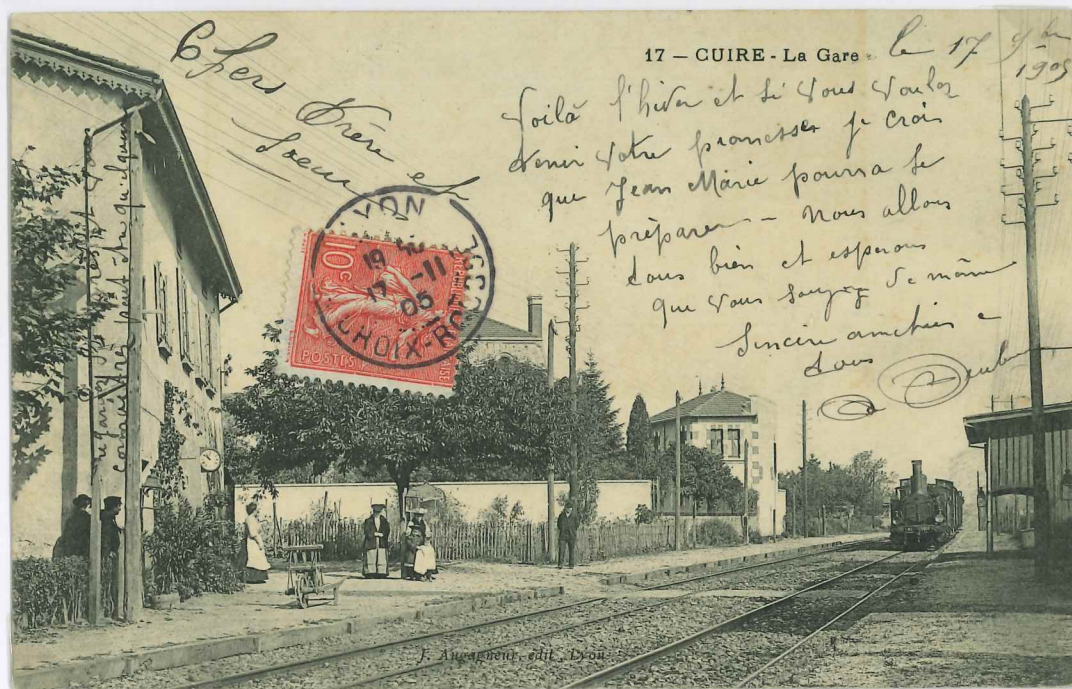 17 — CUIRE - La Gare
le 17 9bre
1905
Chers
Frère et
Soeur
Voilà l'hiver et si vous voulez
tenir votre promesse je crois
que Jean Marie pourra se
préparer — Nous allons
tous bien et esperons
que vous soyez de même
Sincire amitiés
tous
regardez
connaitrez quelqu'un
LYON
19
17 - 11
05
CROIX-ROUSSE
10c
POSTES
F. Augagneur, édit., Lyon